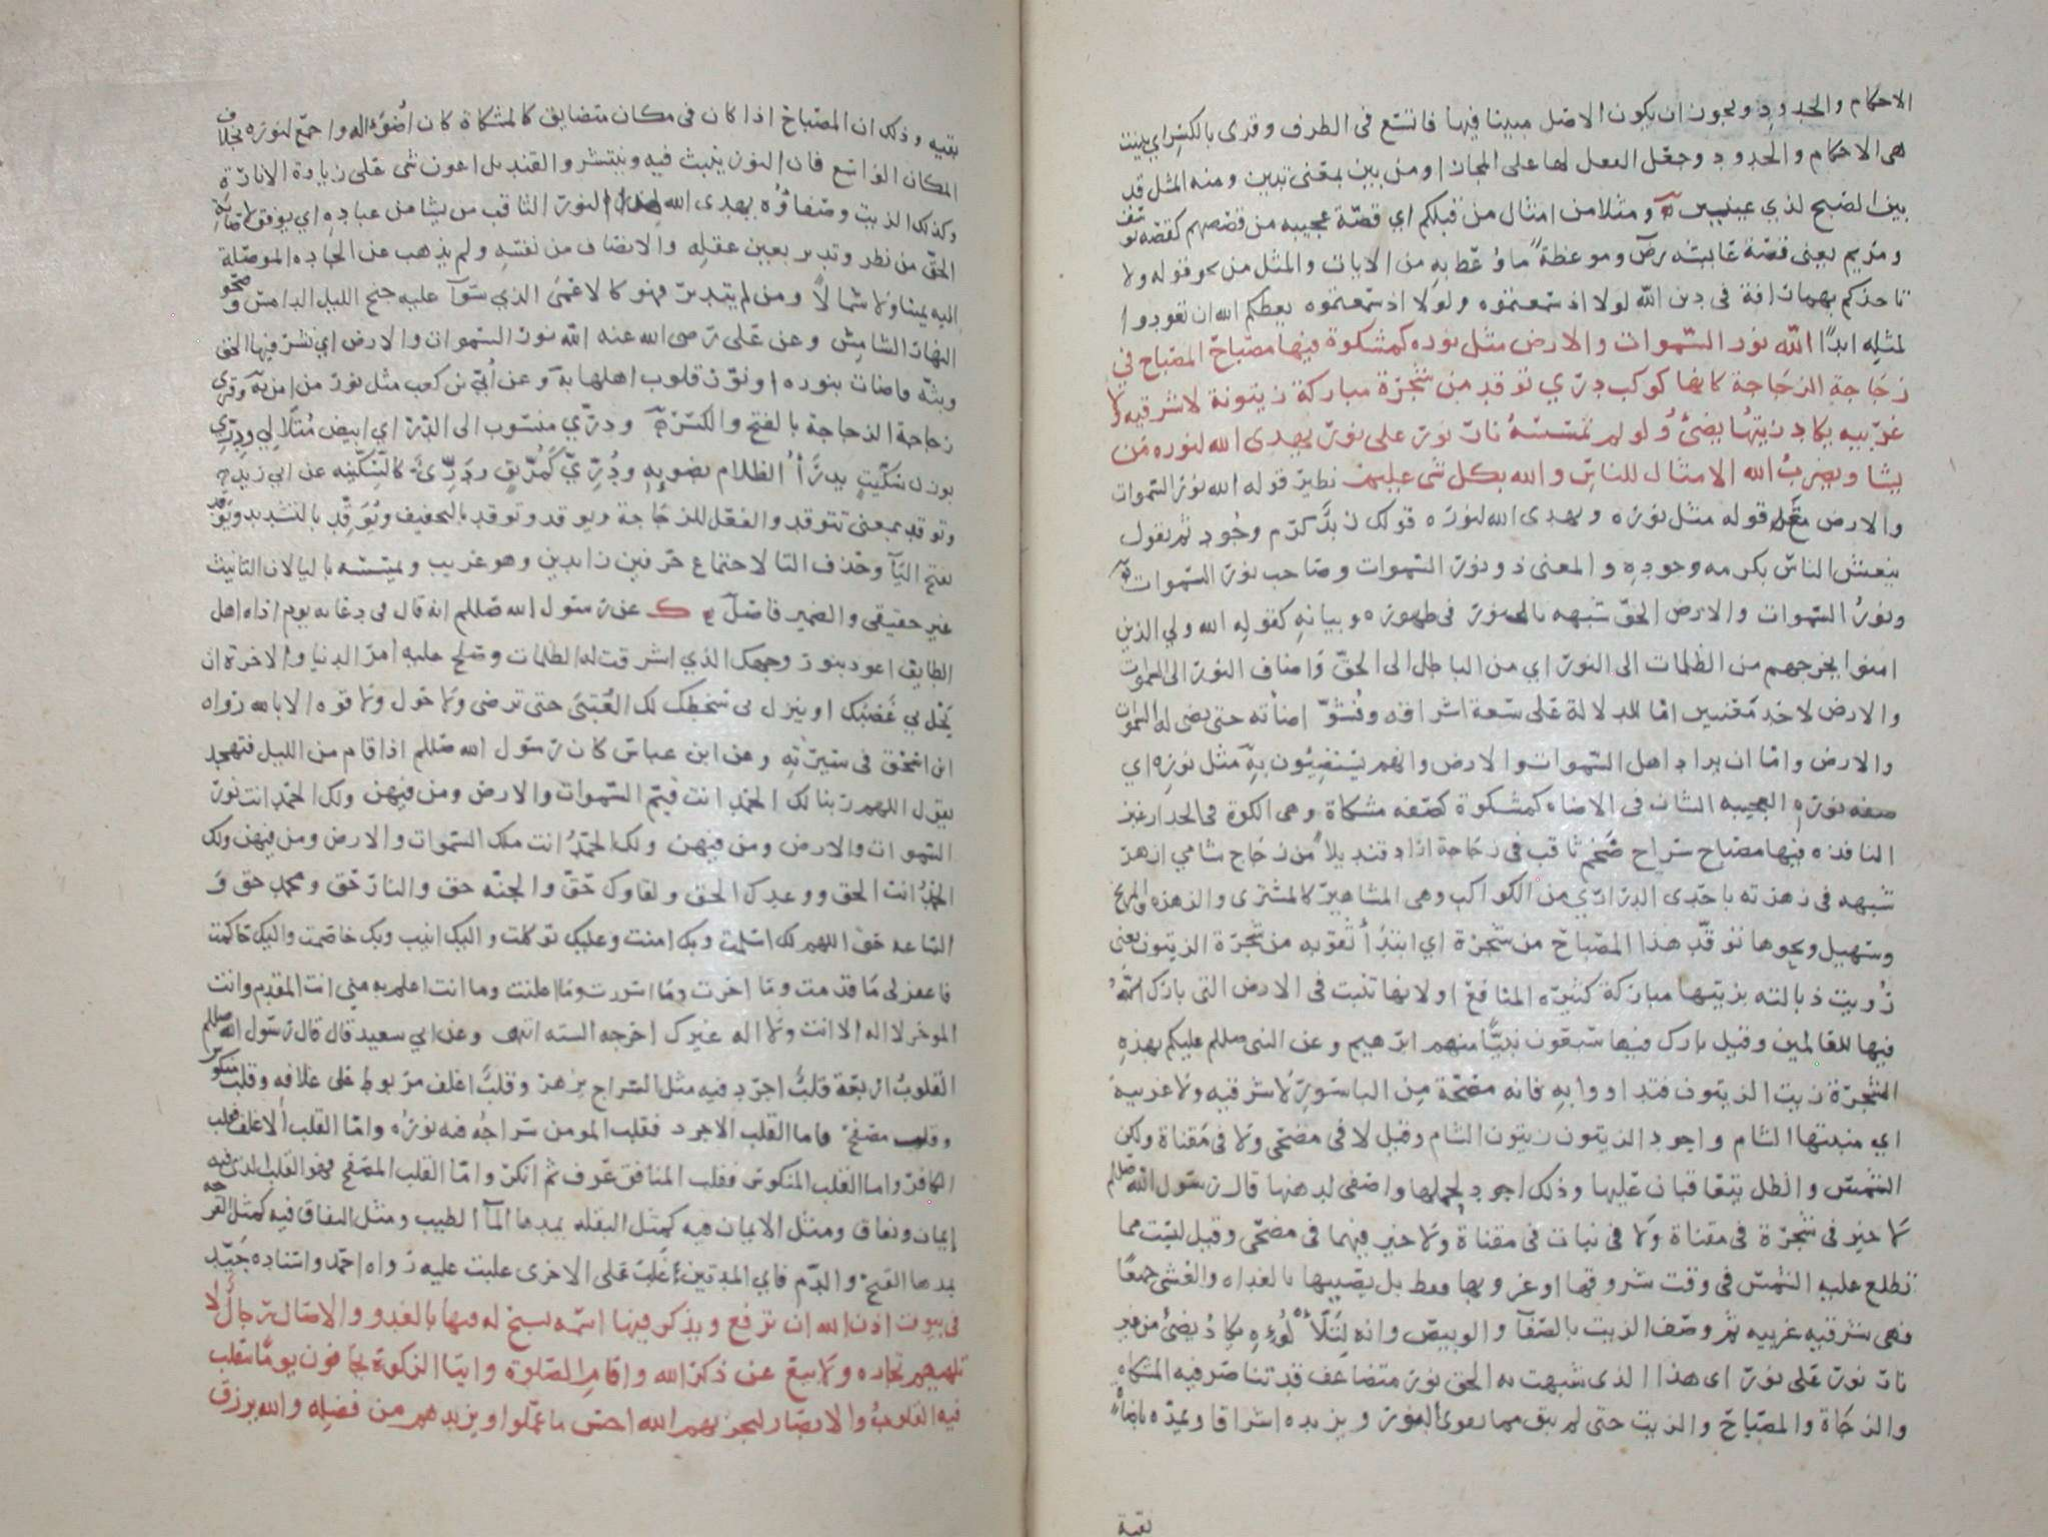 الاحكام والحدود ويجوز ان يكون الاصل مبينا فيها فاتسع فى الظرف وقرى بالكسر اي بينت
هى الاحكام والحدود وجعل الفعل لها على المجاز او من بين بمعنى تبين ومنه المثل قد
بين الصبح لذي عينين ومثلا من امثال من قبلكم اي قصة عجيبه من قصصهم كقصه يوسف
ومريم يعنى قصة عايشه رض وموعظة ما وعظ به من الايات والمثل من نحو قوله ولا
تاخذكم بهما رافة فى دين الله لولا اذ سمعتموه ولولا اذ سمعتموه يعظكم الله ان تعودوا
لمثله ابدا الله نور السموات والارض مثل نوره كمشكوة فيها مصباح المصباح في
زجاجة الزجاجة كانها كوكب دري توقد من شجرة مباركة زيتونة لا شرقيه ولا
غربيه يكاد زيتها يضئ ولو لم تمسسه نار نور على نور يهدى الله لنوره من
يشا ويضرب الله الامثال للناس والله بكل شى عليم نظير قوله الله نور السموات
والارض مع قوله مثل نوره ويهدى الله لنوره قولك زيد كرم وجود ثم تقول
ينعش الناس بكرمه وجوده والمعنى ذو نور السموات وصاحب نور السموات
ونور السموات والارض الحق شبهه بالنور فى ظهوره وبيانه كقوله الله ولي الذين
امنوا يخرجهم من الظلمات الى النور اي من الباطل الى الحق واضاف النور الى السموات
والارض لاحد معنيين اما للدلالة على سعة اشراقه وفشو اضاته حتى يضى له السموات
والارض واما ان يراد اهل السموات والارض وانهم يستضيئون به مثل نوره اي
صفه نوره العجيبه الشان فى الاضاه كمشكوة كصفه مشكاة وهى الكوة فى الجدار غير
النافذه فيها مصباح سراج ضخم ثاقب فى زجاجة اراد قنديلا من زجاج شامي ازهر
شبهه فى زهرته باحدى الدراري من الكواكب وهى المشاهير كالمشترى والزهره والمريخ
وسهيل ونحوها توقد هذا المصباح من شجرة اي ابتدا ثقوبه من شجرة الزيتون يعنى
رويت ذبالته بزيتها مباركة كثيره المنافع او لانها تنبت فى الارض التى بارك الله
فيها للعالمين وقيل بارك فيها سبعون نبيا منهم ابرهيم وعن النبى صللم عليكم بهذه
الشجرة زيت الزيتون فتداووا به فانه مصحة من الباسور لا شرقيه ولا غربية
اي منبتها الشام واجود الزيتون زيتون الشام وقيل لا فى مضحى ولا فى مقناة ولكن
الشمس والظل يتعاقبان عليها وذلك اجود لحملها واصفى لدهنها قال رسول الله صللم
لا خير فى شجرة فى مقناة ولا فى نبات فى مقناة ولا خير فيهما فى مضحى وقيل ليست مما
تطلع عليه الشمس فى وقت شروقها او غروبها فقط بل يصيبها بالغداه والعشى جميعا
فهى شرقيه غربيه ثم وصف الزيت بالصفا والوبيص وانه لتلألؤه يكاد يضئ من غير
نار نور على نور اى هذا الذى شبهت به الحق نور متضاعف قد تناصر فيه المشكاه
والزجاجة والمصباح والزيت حتى لم يبق مما يقوى النور ويزيده اشراقا ويمده باضاة
بقية
بقيه وذلك ان المصباح اذا كان فى مكان متضايق كالمشكاة كان اضوء له واجمع لنوره بخلاف
المكان الواسع فان النور ينبث فيه وينتشر والقنديل اعون شى على زيادة الانارة
وكذلك الزيت وصفاؤه يهدى الله لهذا النور الثاقب من يشا من عباده اي يوفق لاصابة
الحق من نظر وتدبر بعين عقله والانصاف من نفسه ولم يذهب عن الجاده الموصلة
اليه يمينا ولا شمالا ومن لم يتدبر فهو كالاعمى الذي سوآ عليه جنح الليل الدامس وضحوة
النهار الشامس وعن على رضى الله عنه الله نور السموات والارض اي نشر فيها الحق
وبثه فاضات بنوره او نور قلوب اهلها به وعن أبي بن كعب مثل نور من امن به وقرى
زجاجة الزجاجة بالفتح والكسر ودري منسوب الى الدر اي ابيض متلالي ودري
بوزن سكيت يدرأ الظلام بضوئه ودري كمريق ودري كالسكينه عن ابي زيد
وتوقد بمعنى تتوقد والفعل للزجاجة ويوقد وتوقد بالتخفيف ويوقد بالتشديد ويوقد
بفتح اليآ وحذف التا لاجتماع حرفين زايدين وهو غريب ويمسسه باليا لان التانيث
غير حقيقى والضمير فاصل ك عن رسول الله صللم انه قال فى دعائه يوم اذاه اهل
الطايف اعوذ بنور وجهك الذي اشرقت له الظلمات وصلح عليه امر الدنيا والاخرة ان
يحل بي غضبك او ينزل بى سخطك لك العتبى حتى ترضى ولا حول ولا قوه الا بالله رواه
ابن اسحق فى سيرته وعن ابن عباس كان رسول الله صللم اذا قام من الليل فتهجد
يقول اللهم ربنا لك الحمد انت قيم السموات والارض ومن فيهن ولك الحمد انت نور
السموات والارض ومن فيهن ولك الحمد انت ملك السموات والارض ومن فيهن ولك
الحمد انت الحق ووعدك الحق ولقاوك حق والجنه حق والنار حق ومحمد حق و
الساعه حق اللهم لك اسلمت وبك امنت وعليك توكلت واليك انيب وبك خاصمت واليك حاكمت
فاغفر لى ما قدمت وما اخرت وما اسررت وما اعلنت وما انت اعلم به منى انت المقدم وانت
الموخر لا اله الا انت ولا اله غيرك اخرجه السته انتهى وعن ابي سعيد قال قال رسول الله صللم
القلوب اربعة قلب اجرد فيه مثل السراج يزهر وقلب اغلف مربوط على غلافه وقلب منكوس
وقلب مصفح فاما القلب الاجرد فقلب المومن سراجه فيه نوره واما القلب الاغلف فقلب
الكافر واما القلب المنكوس فقلب المنافق عرف ثم انكر واما القلب المصفح فهو القلب الذى فيه
إيمان ونفاق ومثل الايمان فيه كمثل البقله يمدها المآ الطيب ومثل النفاق فيه كمثل القرحه
يمدها القيح والدم فاي المدتين غلبت على الاخرى غلبت عليه رواه احمد واسناده جيد
فى بيوت اذن الله ان ترفع ويذكر فيها اسمه يسبح له فيها بالغدو والاصال رجال لا
تلهيهم تجاره ولا بيع عن ذكر الله واقام الصلوة وايتا الزكوة يخافون يوما تتقلب
فيه القلوب والابصار ليجزيهم الله احسن ما عملوا ويزيدهم من فضله والله يرزق